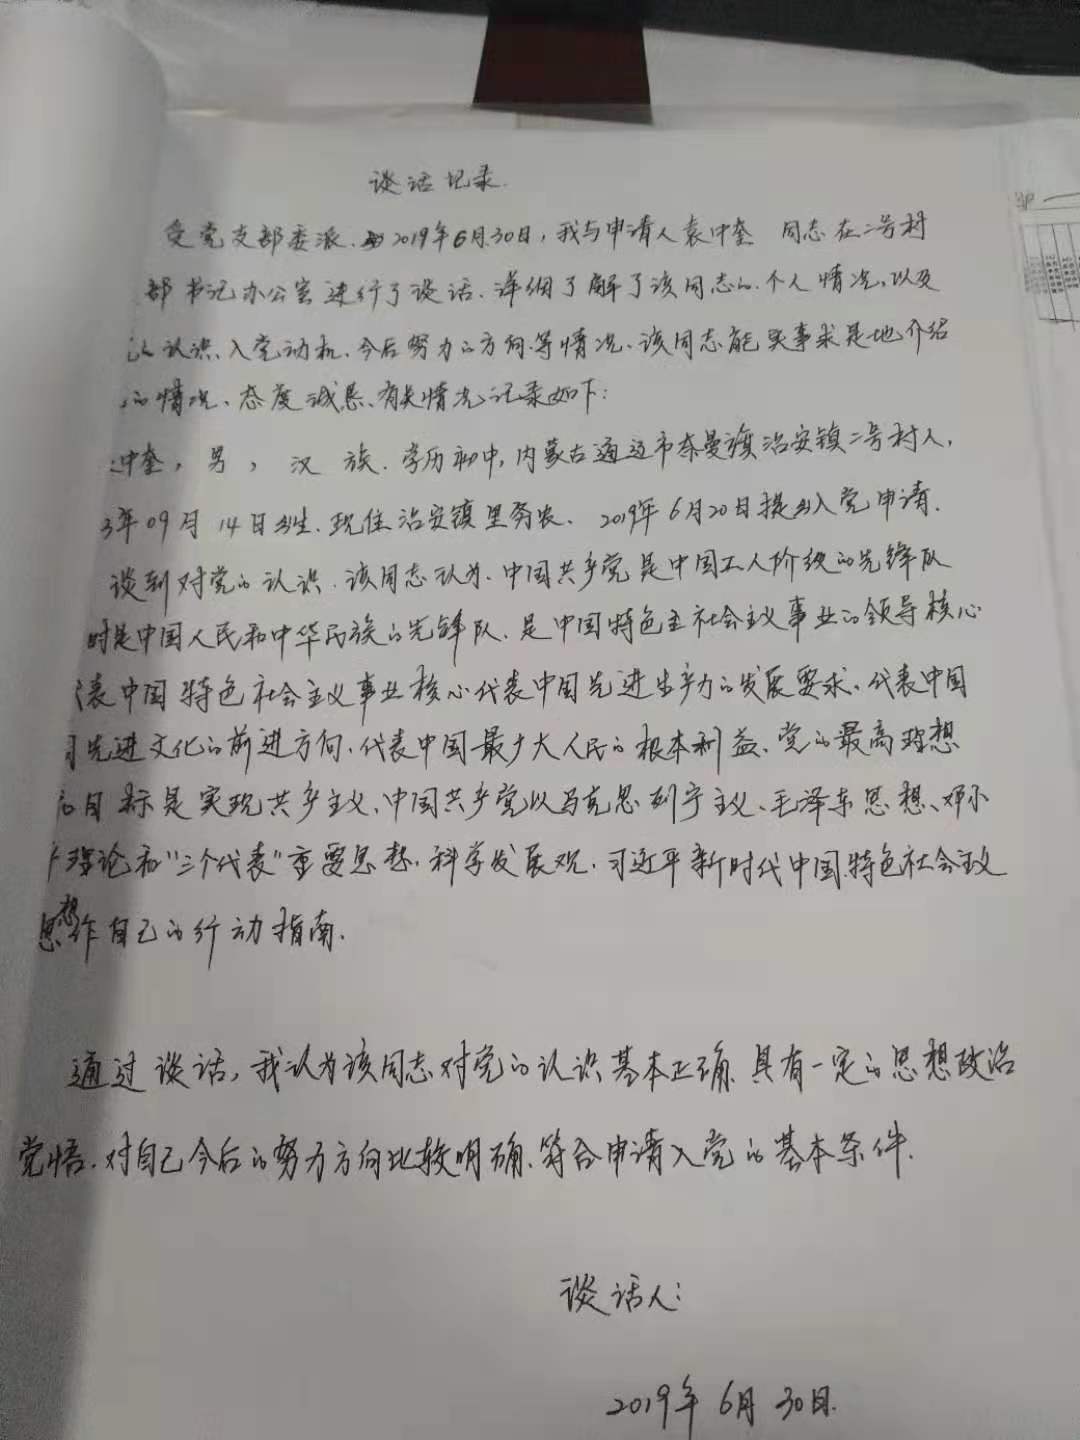 谈话记录.
受党支部委派.于2019年6月30日,我与申请人袁中奎 同志在二号村
部书记办公室进行了谈话.详细了解了该同志的.个人情况、以及
认识、入党动机、今后努力的方向.等情况、该同志能实事求是地介绍
的情况、态度诚恳、有关情况记录如下:
中奎,男,汉族.学历初中,内蒙古通辽市奈曼旗治安镇二号村人,
3年09月14日出生.现住治安镇里务农、2019年6月20日提出入党申请.
谈到对党的认识.该同志认为.中国共产党是中国工人阶级的先锋队
时是中国人民和中华民族的先锋队.是中国特色主社会主义事业的领导核心
代表中国特色社会主义事业核心代表中国先进生产力的发展要求、代表中国
先进文化的前进方向、代表中国最广大人民的根本利益、党的最高理想
目标是实现共产主义、中国共产党以马克思列宁主义、毛泽东思想、邓小
理论和"三个代表"重要思想.科学发展观.习近平新时代中国特色社会主义
思想作自己的行动指南.
通过谈话,我认为该同志对党的认识基本正确.具有一定的思想政治
党悟.对自己今后的努力方向比较明确.符合申请入党的基本条件.
谈话人:
2019年6月30日.